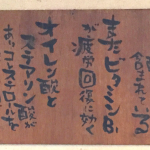 含まれている
またビタミンB₁
が疲労回復に効く
オイレン酸と
ステアリン酸が
あり、コレステロール